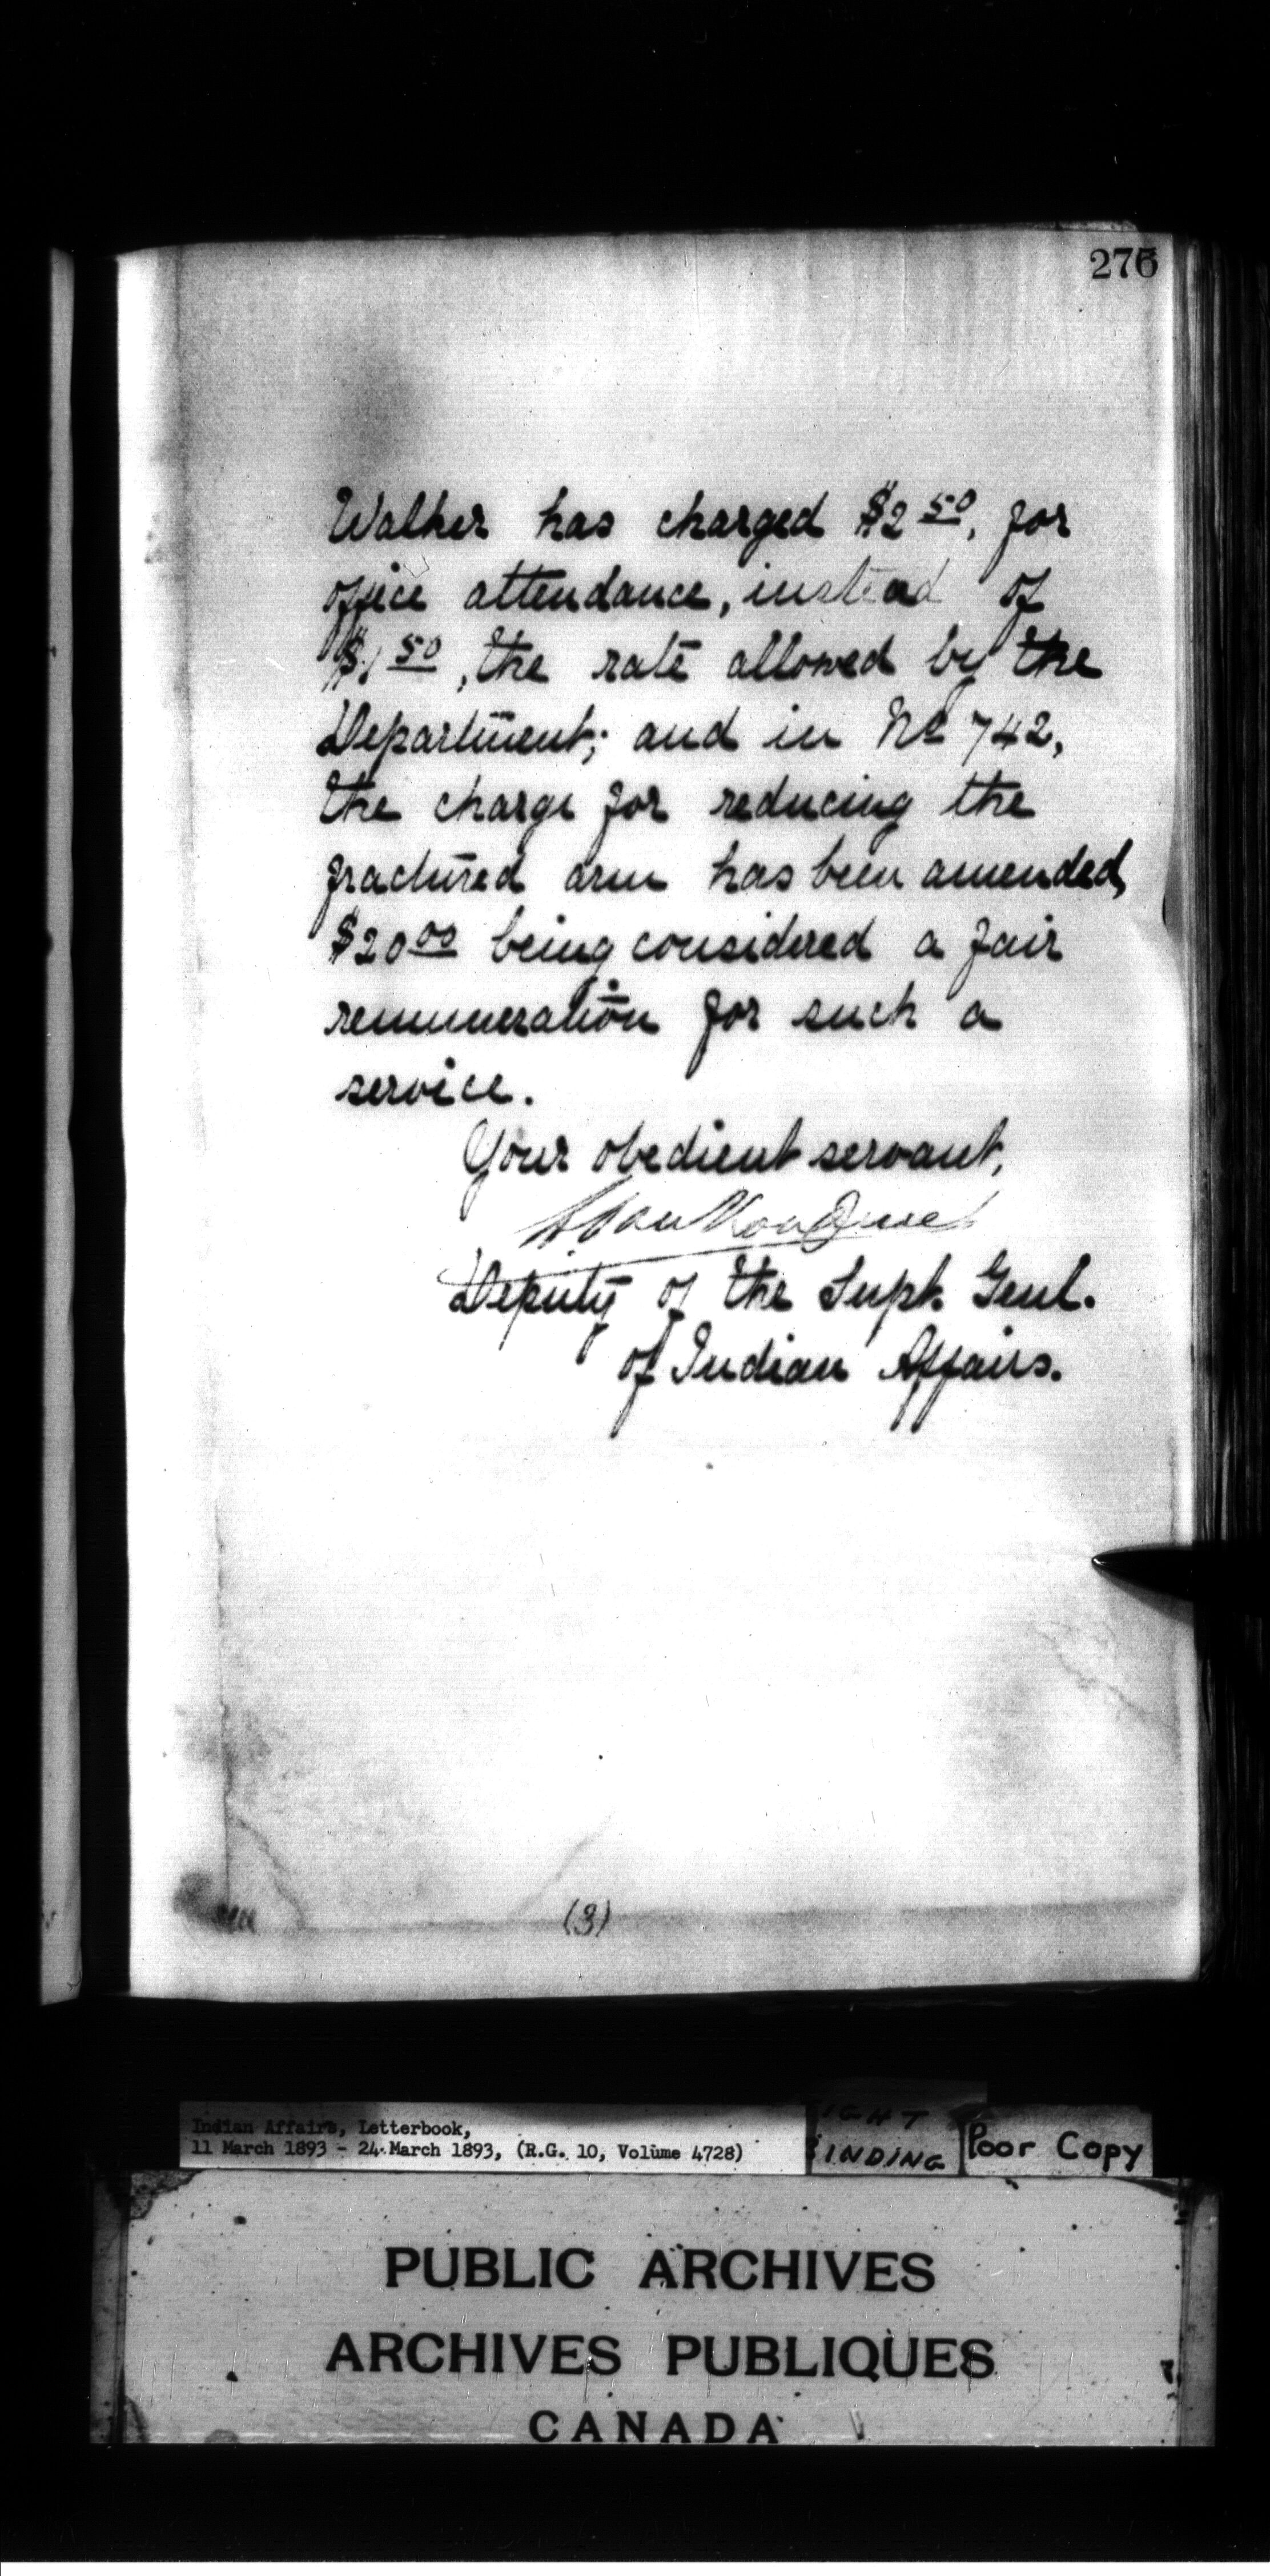 276
Walker has charged $2 50, for
office attendance, instead of
$1 50, the rate allowed by the
Department; and in No 742,
the charge for reducing the
fractured arm has been amended,
$20 00 being considered a fair
remuneration for such a
service.
Your obedient servant,
L. VanKoughnet
Deputy of the Supt. Genl.
of Indian Affairs.
(3)
Indian Affairs, Letterbook,
11 March 1893 - 24 March 1893, (R.G. 10, Volume 4728)
INDING
Poor Copy
PUBLIC ARCHIVES
ARCHIVES PUBLIQUES
CANADA